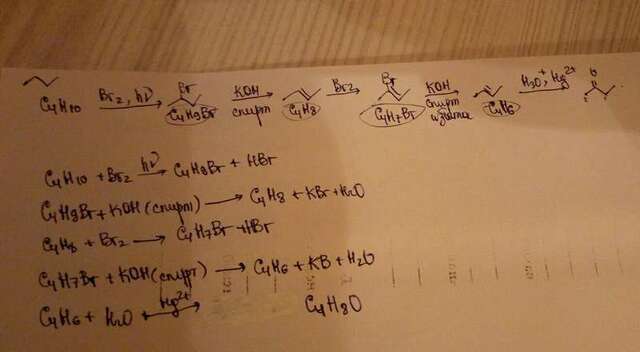 C4H10 Br2, hν Br C4H9Br KOH спирт C4H8 Br2 Br C4H7Br KOH спирт C4H6 H3O+, Hg2+ O
C4H10 + Br2 hν → C4H9Br + HBr
C4H9Br + KOH (спирт) → C4H8 + KBr + H2O
C4H8 + Br2 → C4H7Br + HBr
C4H7Br + KOH (спирт) → C4H6 + KB + H2O
C4H6 + H2O Hg2+ → C4H8O